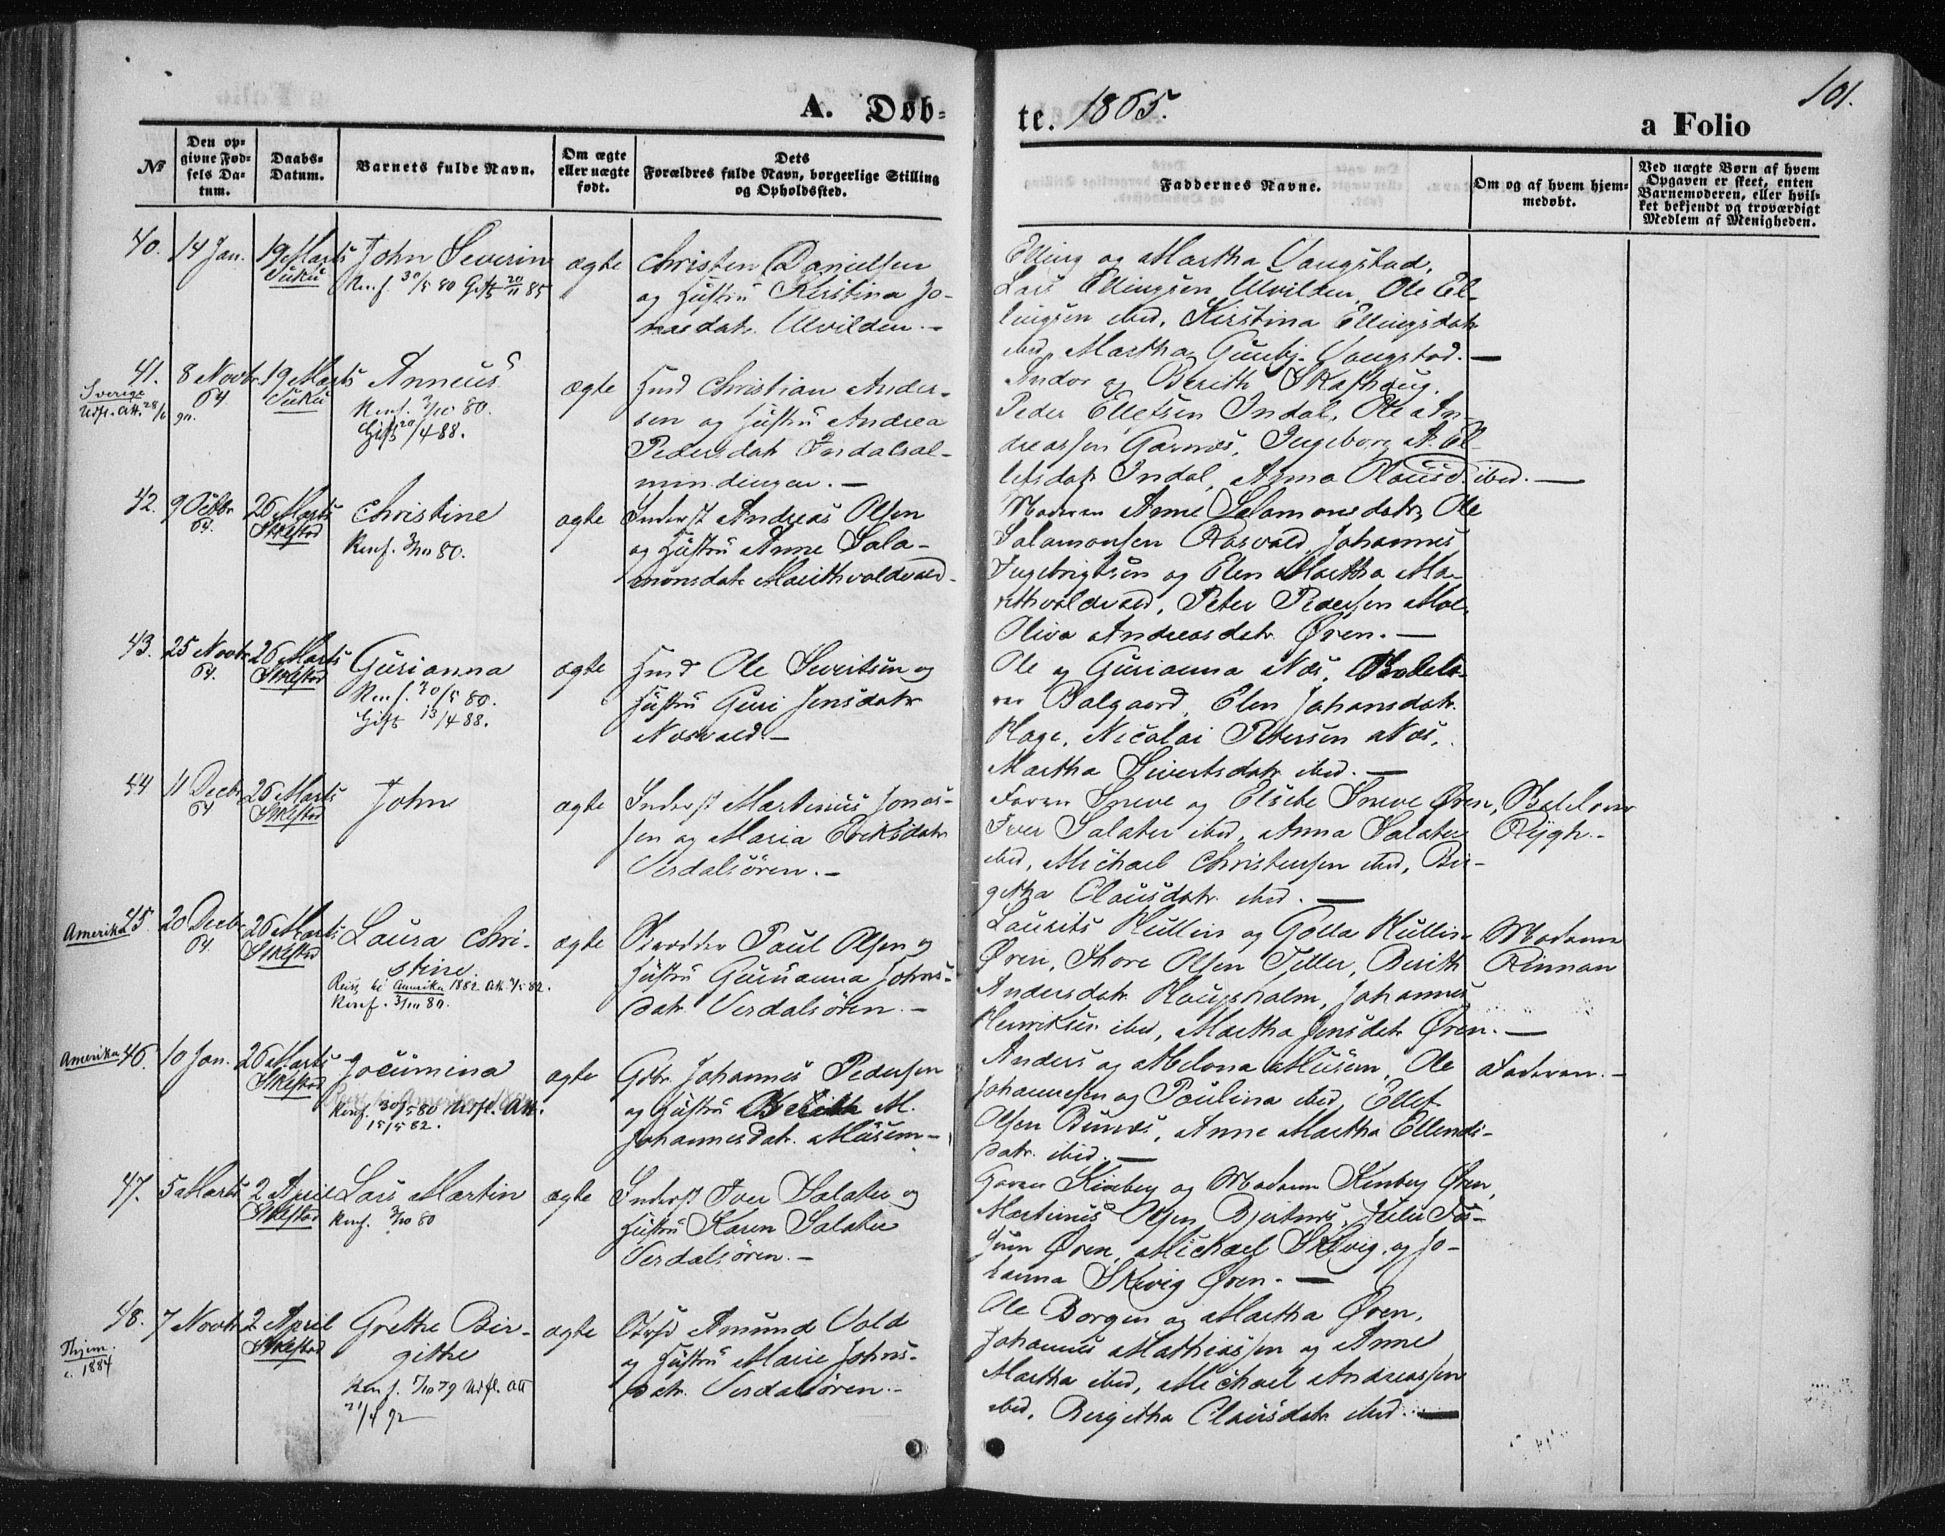 A. Døb-
te. 1865.
101.
a Folio
№
Den op-
givne Fød-
sels Da-
tum.
Daabs-
Datum.
Barnets fulde Navn.
Om ægte
eller uægte
født.
Dets
Forældres fulde Navn, borgerlige Stilling
og Opholdssted.
Faddernes Navne.
Om og af hvem hjem-
medøbt.
Ved uægte Børn af hvem
Opgaven er skeet, enten
Barnemoderen, eller hvil-
ket bekjendt og troværdigt
Medlem af Menigheden.
40.
14 Jan.
19 Marts
Vuku
John Severin
Konf. 30/5 80 Gift 20/11 85
ægte
Christen Danielsen
og Hustru Kirstina Jo-
nasdatr. Ulvilden. -
Elling og Martha Vangstad,
Lars Ellingsen Ulvilden, Ole El-
lingsen ibid, Kirstina Ellingsdatr
ibid, Martha Gunbj. Vangstad. —
41.
Sverige
Udfl. Att. 28/6 90.
8 Novbr
64
19 Marts
Vuku
Anneus
Konf. 3/10 80.
Gift 20/4 88.
ægte
Hmd Christian Ander-
sen og Hustru Andrea
Pedersdatr Indalsal-
mindingen. —
Andor og Berith Skafhaug,
Peder Elletsen Indal, Ole An-
dreassen Garnæs, Ingeborg A. El-
letsdatr Indal, Anna Olausd. ibid. —
42.
9 Octbr
64.
26 Marts
Stiklestad
Christine
Konf. 3/10 80.
ægte
Inderst Andreas Olsen
og Hustru Anne Sala-
monsdatr Marithvoldvald -
Moderen Anne Salamonsdatr, Ole
Salamonsen Aasvald, Johannes
Ingebrigtsen og Elen Martha Ma-
rithvoldvald, Peter Pedersen Moe
Oliva Andreasdatr Øren. —
43.
25 Novbr
64.
26 Marts
Stiklestad
Gurianna
Konf. 30/5 80.
Gift 13/4 88.
ægte
Hmd Ole Sivertsen og
Hustru Guri Jensdatr
Næsvald. —
Ole og Gurianna Næs,
Balgaard, Elen Johansdatr.
Hage, Nicolai Petersen Næs,
Martha Sivertsdatr ibid. —
44
11 Decbr
64
26 Marts
Stiklestad
John
ægte
Inderst Martinus Jonas-
sen og Maria Eriksdatr
Verdalsören. —
Faren Sneve og Elsebe Sneve Øren,
Iver Salater ibid, Anna Salater
ibid, Michael Christensen ibid, Bir-
getha Clausdatr. ibid. —
Rygh. -
Amerika
45.
20 Decbr
64
26 Marts
Stiklestad
Laura Chri-
stine.
Reist til Amerika 1882 Att. 4/5 82.
Konf. 3/10 80.
ægte
Paul Olsen og
Hustru Gurianna Johns-
datr. Verdalsören. —
Laurits Hullin og Golla Hullin
Øren, Thore Olsen Tiller, Berith
Andersdatr Haugsholm, Johannes
Henriksen ibid, Martha Jensdatr Øren. —
Madam
Rinnan
Amerika
46.
10 Jan.
26 Marts
Stiklestad
Jocumina
Konf. 30/5 80 Udfl. Att.
15/5 82.
ægte
Gdbr. Johannes Pedersen
og Hustru Berith M.
Johannesdatr. Musem —
Anders og Melena Musem, Ole
Johannesen og Paulina ibid, Ellef
Olsen Bunes, Anne Martha Ellends-
datr. ibid. —
Faderen. -
47.
5 Marts
2 April
Stiklestad
Lars Martin
Konf. 3/10 80
ægte
Inderst Iver Salater og
Hustru Karen Salater
Verdalsören. —
Garver Kinberg og Madam Kinberg Øren,
Martinus Olsen Bjertnes, Julie Fos-
sum Øren, Mickael Skevig og Jo-
hanna Skevig Øren. —
48.
Thjem.
1884
7 Novbr
2 April
Stiklestad
Grethe Bir-
githe
Konf. 5/10 79 Udfl. Att
21/4 92
ægte
Amund Vold
og Hustru Marie Johns-
datr. Verdalsören. -
Ole Borgen og Martha Øren,
Johannes Mathiassen og Anne
Martha ibid, Michael Andreassen
ibid, Bergitha Clausdatr ibid. —